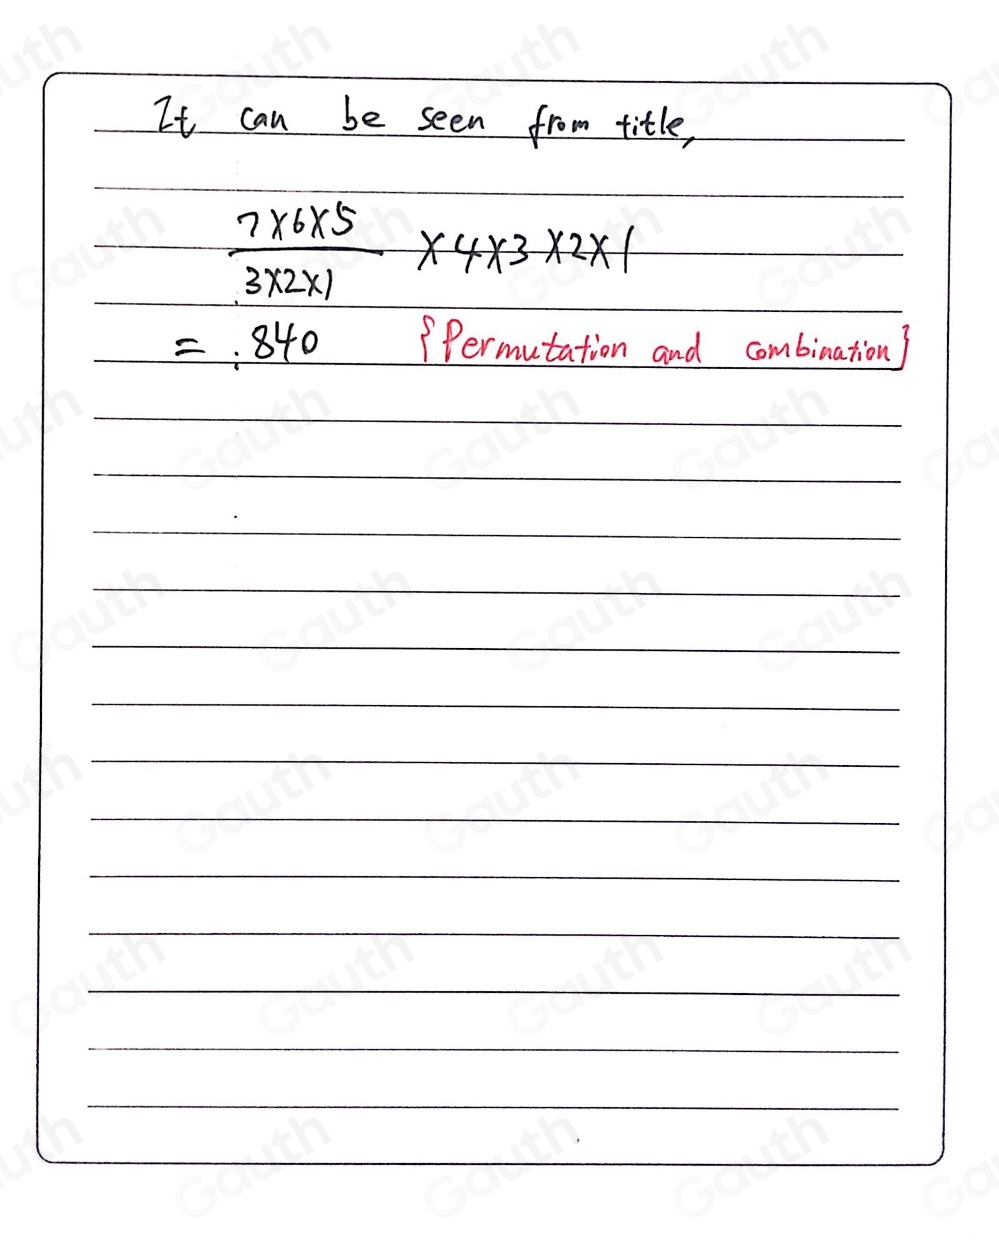 It can be seen from title,
7×6×5
3×2×1
×4×3×2×1
= 840 {Permutation and combination}
Gauth